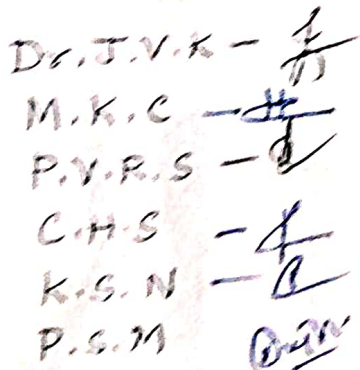 Dr. J.V.K -
M.K.C -
P.V.R.S -
C.H.S -
K.S.N -
P.S.M